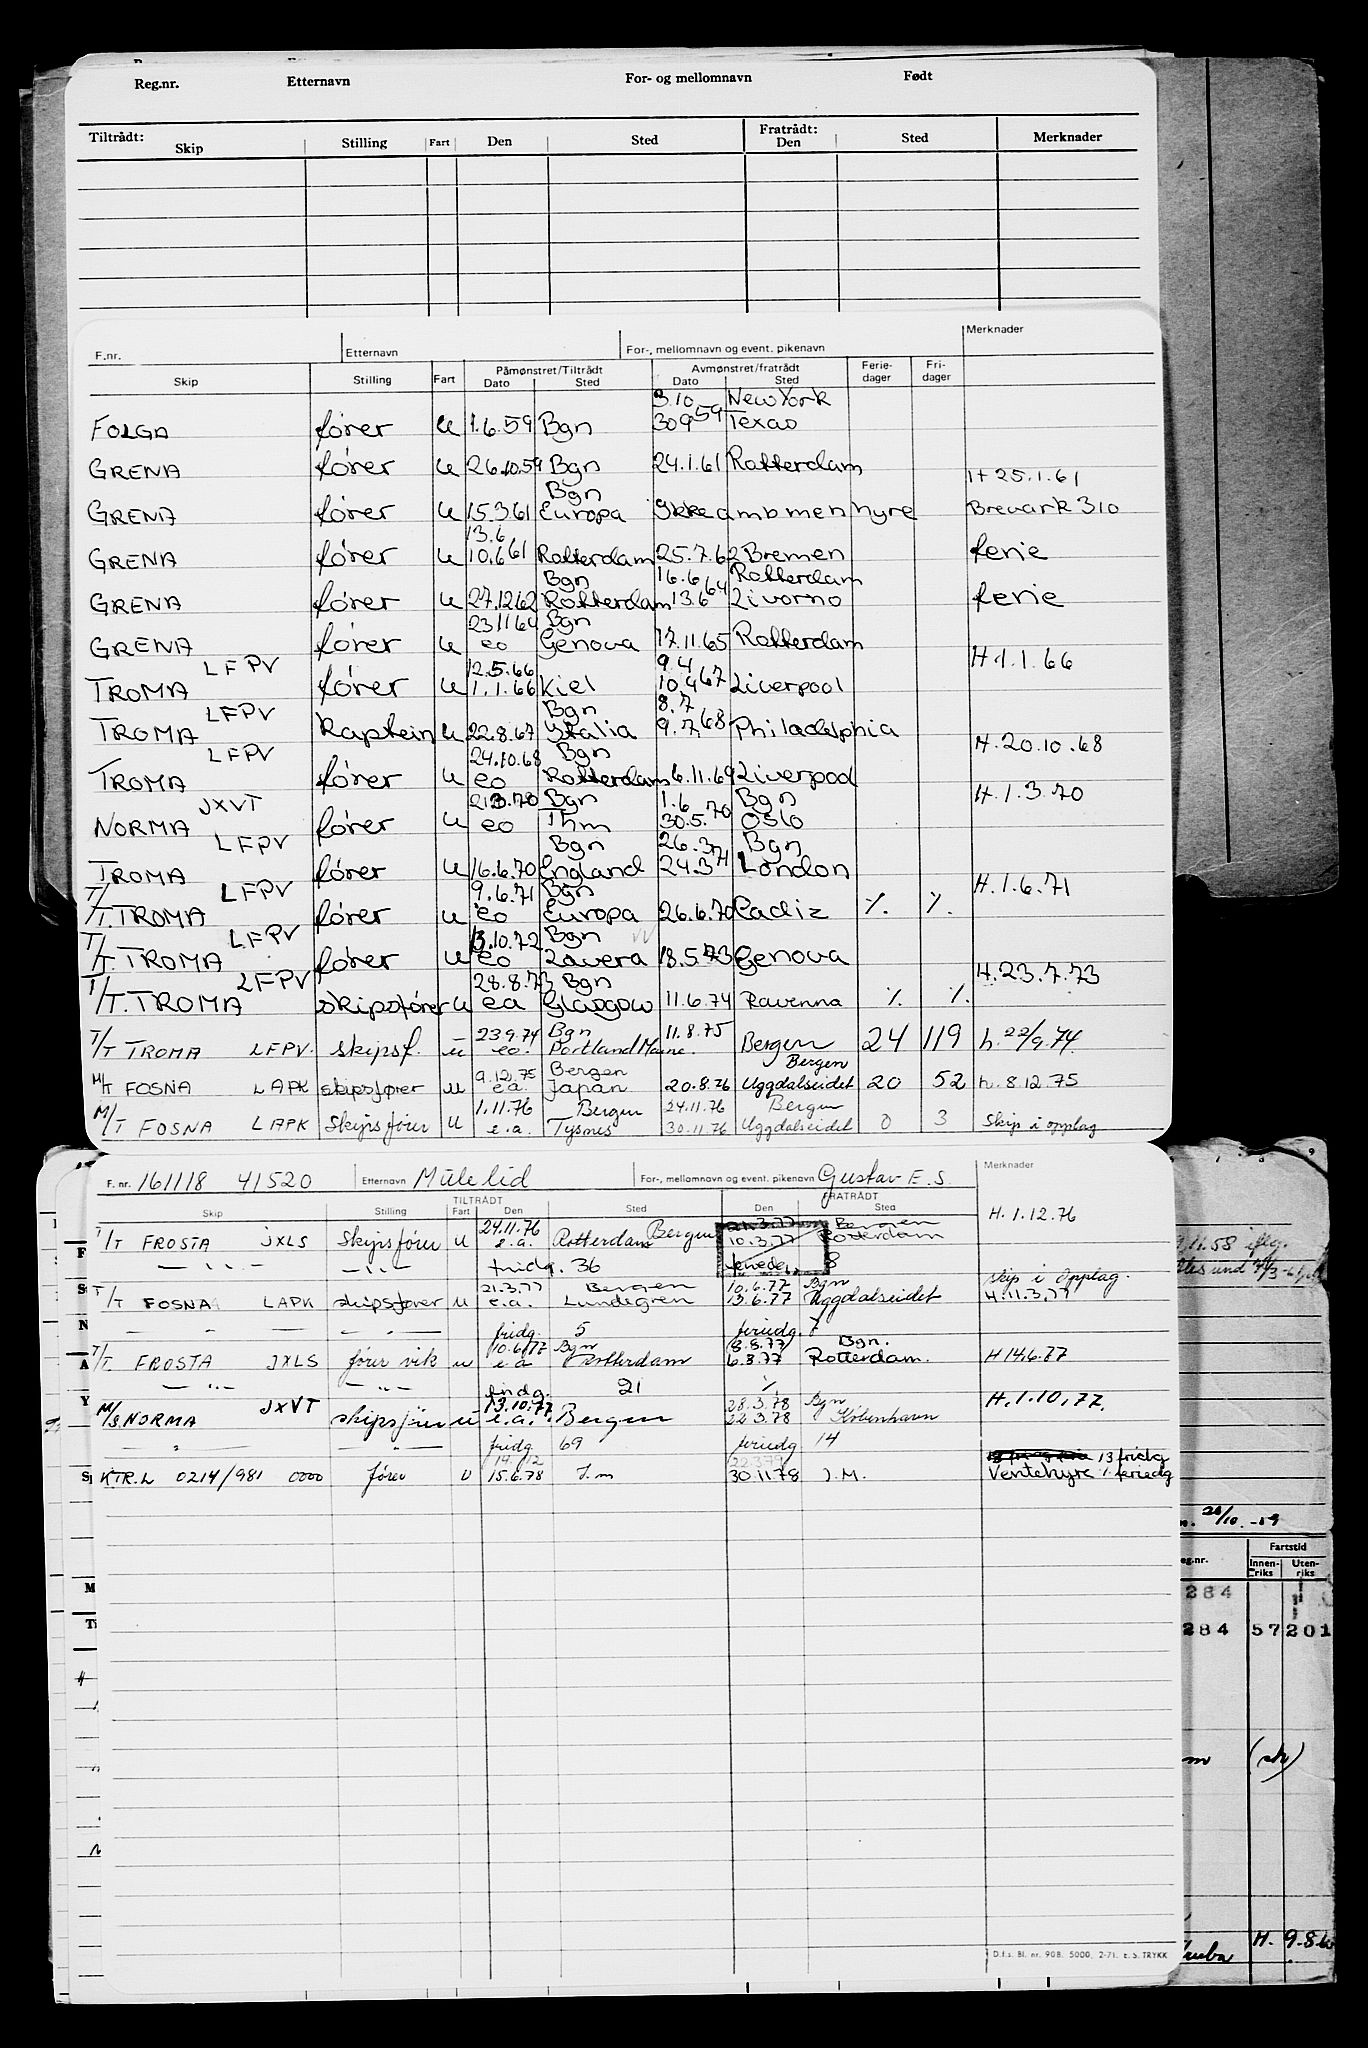 Reg.nr. Etternavn For- og mellomnavn Født
Tiltrådt: Skip Stilling Fart Den Sted Fratrådt: Den Sted Merknader
F.nr. Etternavn For-, mellomnavn og event. pikenavn Merknader
Skip Stilling Fart Påmønstret/Tiltrådt Dato Sted Avmønstret/fratrådt Dato Sted Ferie-dager Fri-dager
3.10 New York
FOLGA fører u 1.6.59 Bgn 30.9 59 Texas
GRENA fører u 26.10.59 Bgn 24.1.61 Rotterdam H 25.1.61
Bgn
GRENA fører u 15.3.61 Europa Ikke ombmen hyre Brevark 310
13.6
GRENA fører u 10.6.61 Rotterdam 25.7.62 Bremen ferie
Bgn 16.6 Rotterdam
GRENA fører u 27.12.62 Rotterdam 13.6 64 Livorno ferie
23.11.64 Bgn
GRENA fører u eo Genova 17.11.65 Rotterdam
LFPV 12.5.66 9.4 H 1.1.66
TROMA fører u 1.1.66 Kiel 10.4 67 Liverpool
LFPV Bgn 8.7
TROMA kaptein u 22.8.67 Italia 9.7 68 Philadelphia
LFPV 24.10.68 Bgn H.20.10.68
TROMA fører u eo Rotterdam 6.11.69 Liverpool
JXVT 21.3.70 Bgn 1.6 Bgn H.1.3.70
NORMA fører u eo Thm 30.5.70 Oslo
LFPV Bgn 26.3 Bgn
TROMA fører u 16.6.70 England 24.3 71 London
LFPV 9.6.71 Bgn H.1.6.71
T/T. TROMA fører u eo Europa 26.6.70 Cadiz % %
LFPV 13.10.72 Bgn
T/T. TROMA fører u eo Lavera 18.5.73 Genova
LFPV 28.8.73 Bgn H.23.7.73
T/T. TROMA skipsfører u ea Glasgow 11.6.74 Ravenna % %
23.9.74 Bgn 11.8.75
T/T TROMA LFPV. skipsf. u eo. Portland Maine. Bergen 24 119 h. 22/9.74
9.12.75 Bergen Bergen
M/T FOSNA LAPK skipsfører u e.a. Japan 20.8.76 Uggdalseidet 20 52 h. 8.12.75
1.11.76 Bergen 24.11.76 Bergen
M/T FOSNA LAPK Skipsfører u e.a. Tysnes 30.11.76 Uggdalseidet 0 3 Skip i opplag
F. nr. 161118 41520 Etternavn Mülelid For-, mellomnavn og event. pikenavn Gustav E.S. Merknader
Skip Stilling TILTRÅDT Fart Den Sted FRATRÅDT Den Sted
24.11.76 Bergen 21.3.77 Bergen H.1.12.76
T/T FROSTA JXLS Skipsfører u e.a. Rotterdam 10.3.77 Rotterdam
— " — — " — fridg. 36 feriedg. 8
21.3.77 Bergen 10.6.77 Bgn skip i opplag.
T/T FOSNA LAPK skipsfører u e.a. Lundegren 13.6.77 Uggdalseidet H.11.3.77
fridg. 5 feriedg. 7
10.6.77 Bgn 8.8.77 Bgn.
T/T FROSTA JXLS fører vik u e.a Rotterdam 6.8.77 Rotterdam. H 14.6.77
— " — — " — fridg. 21 %
JXVT 13.10.77 28.3.78 Bgn H.1.10.77.
M/S NORMA skipsfører u e.a. Bergen 22.3.78 København
— " — — " — fridg 69 feriedg 14
14.12 22379 13 fridg
KTR.L 0214/981 0000 fører U 15.6.78 J.m 30.11.78 J.M. Ventehyre % feriedg
D.f.s. Bl. nr. 908. 5000, 2-71. E.S. TRYKK
9.11.58 iflg.
n. 20/10.-59
eg.nr. Fartstid
Innen-riks Uten-riks
284
284 57 201
m (sk)
H. 9.8.6